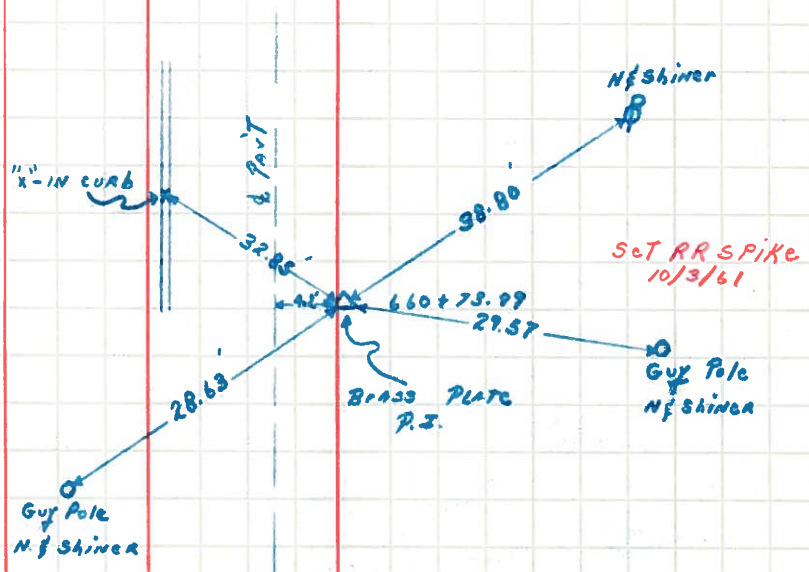 N & Shiner
℄ PAV'T
"X"-IN CURB
38.80'
32.85'
SET RR SPIKE
10/3/61
660+73.
29.57
Guy Pole
N & Shiner
BRASS PLATE
P.I.
28.63'
Guy Pole
N. & Shiner